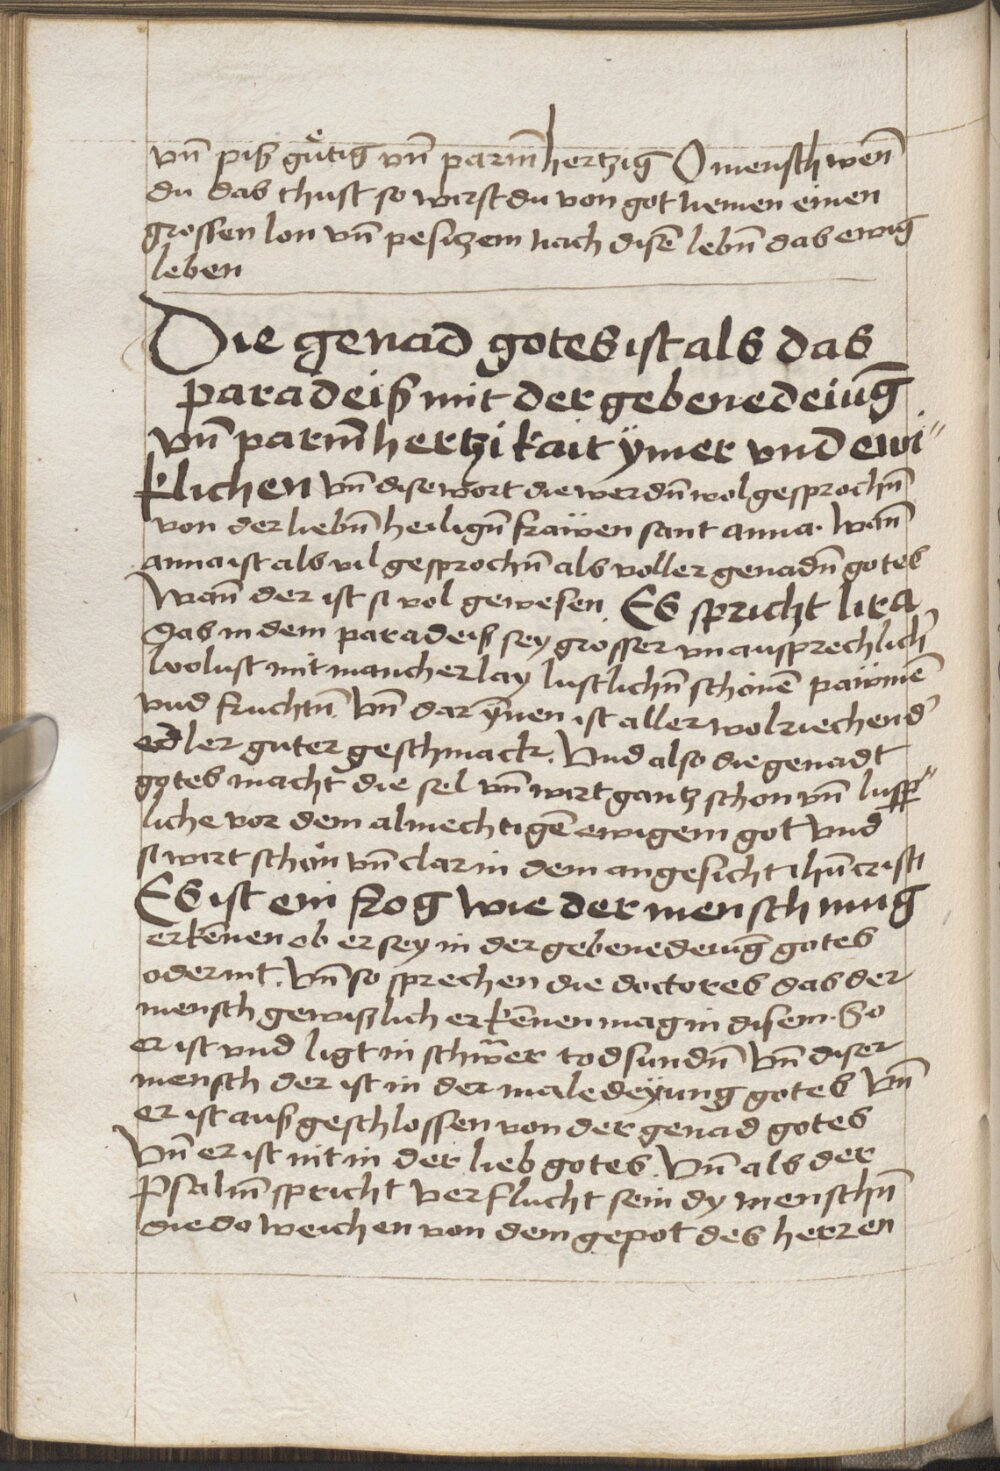 vn̄ piß gůtig vn̄ parm̄hertzig O mensch wen̄
du das thust so wirst du von got nemen einen
grossen lon vn̄ pesitzem nach disē lebn̄ das ewig
leben
Die genad gotes ist als das
paradeiß mit der gebenedeiūg
vn̄ parm̄hertzikait ÿmer vnd ewi"
klichen vn̄ dise wort die werdn̄ wol gesprochn̄
von der liebn̄ heilign̄ frawen sant anna. Wan̄
anna ist als vil gesprochn̄ als voller genadn̄ gotes
Wan̄ der ist si vol gewesen. Es spricht lira
Das in dem paradeiß sey grosser vnausprechlich'
wolust mit mancherlay lustlichn̄ schönē paẅmē
vnd fruchtn̄. Vn̄ dar ȳnen ist aller wolriechend'
edler guter geschmack. Vnd also die genadt
gotes macht die sel vn̄ wirt gantz schon vn̄ lusp"
liche vor dem almechtigē ewigem got vnd
si wirt schön vn̄ clar in dem angesicht ihū cristi
Es ist ein frog wie der mensch mug
erkēnen ob er sey in der gebenedeiūg gotes
oder nit. Vn̄ so sprechen die doctores das der
mensch gewißlich erkēnen mag in disem. So
er ist vnd ligt in schwer todsundn̄ Vn̄ diser
mensch der ist in der maledeÿung gotes Vn̄
er ist außgeschlossen von der genad gotes
Vn̄ er ist nit in der lieb gotes. Vn̄ als der
Psalm̄ spricht Verflucht sein dy menschn̄
die do weichen von dem gepot des herren